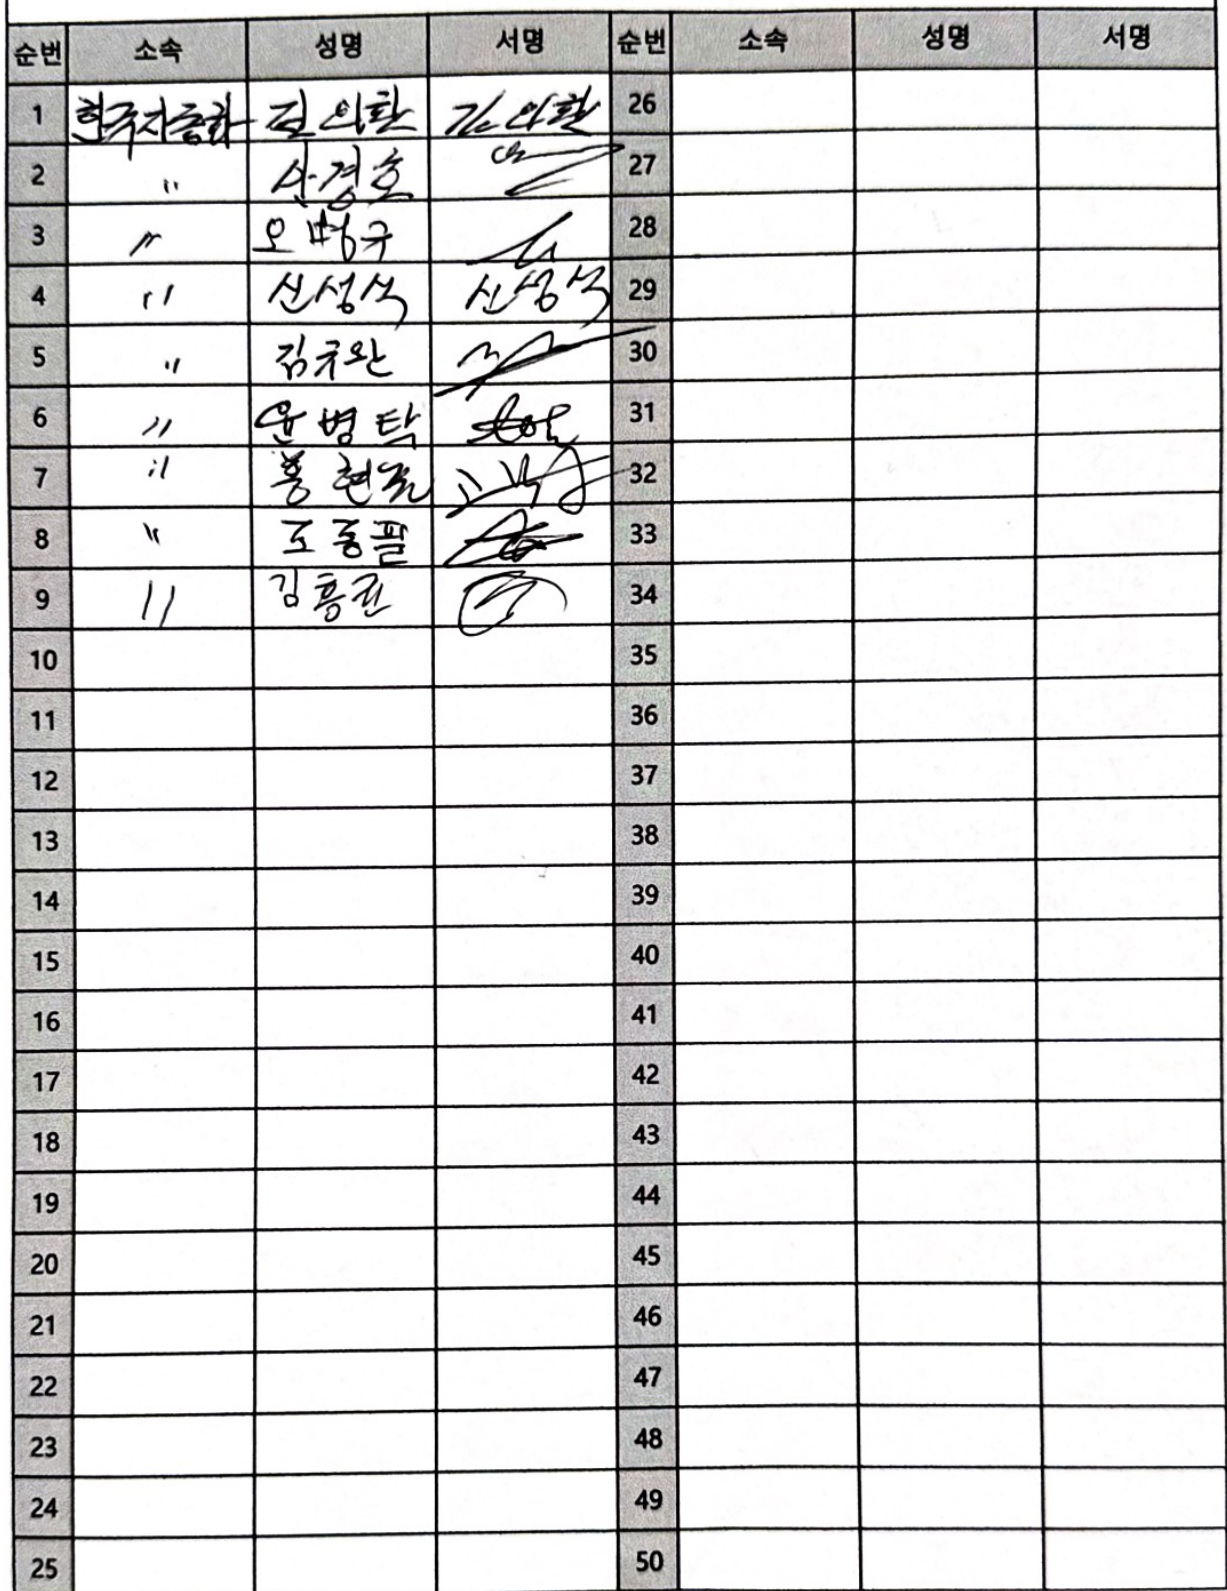 순번 소속 성명 서명 순번 소속 성명 서명
1 26
2 〃 27
3 〃 오병규 28
4 〃 신성식 신성식 29
5 〃 김규완 30
6 〃 윤병탁 31
7 〃 32
8 〃 조동필 33
9 〃 김흥권 34
10 35
11 36
12 37
13 38
14 39
15 40
16 41
17 42
18 43
19 44
20 45
21 46
22 47
23 48
24 49
25 50